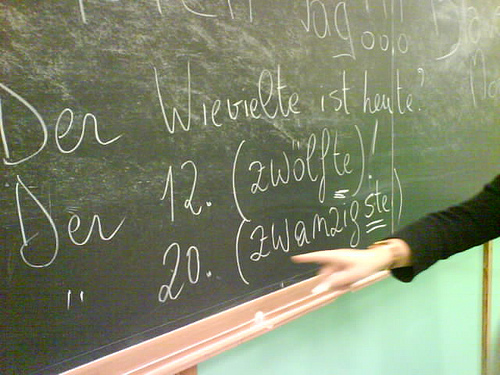 Tag...
Der Wievielte ist heute?
Der 12. (zwölfte)!
" 20. (zwanzigste)